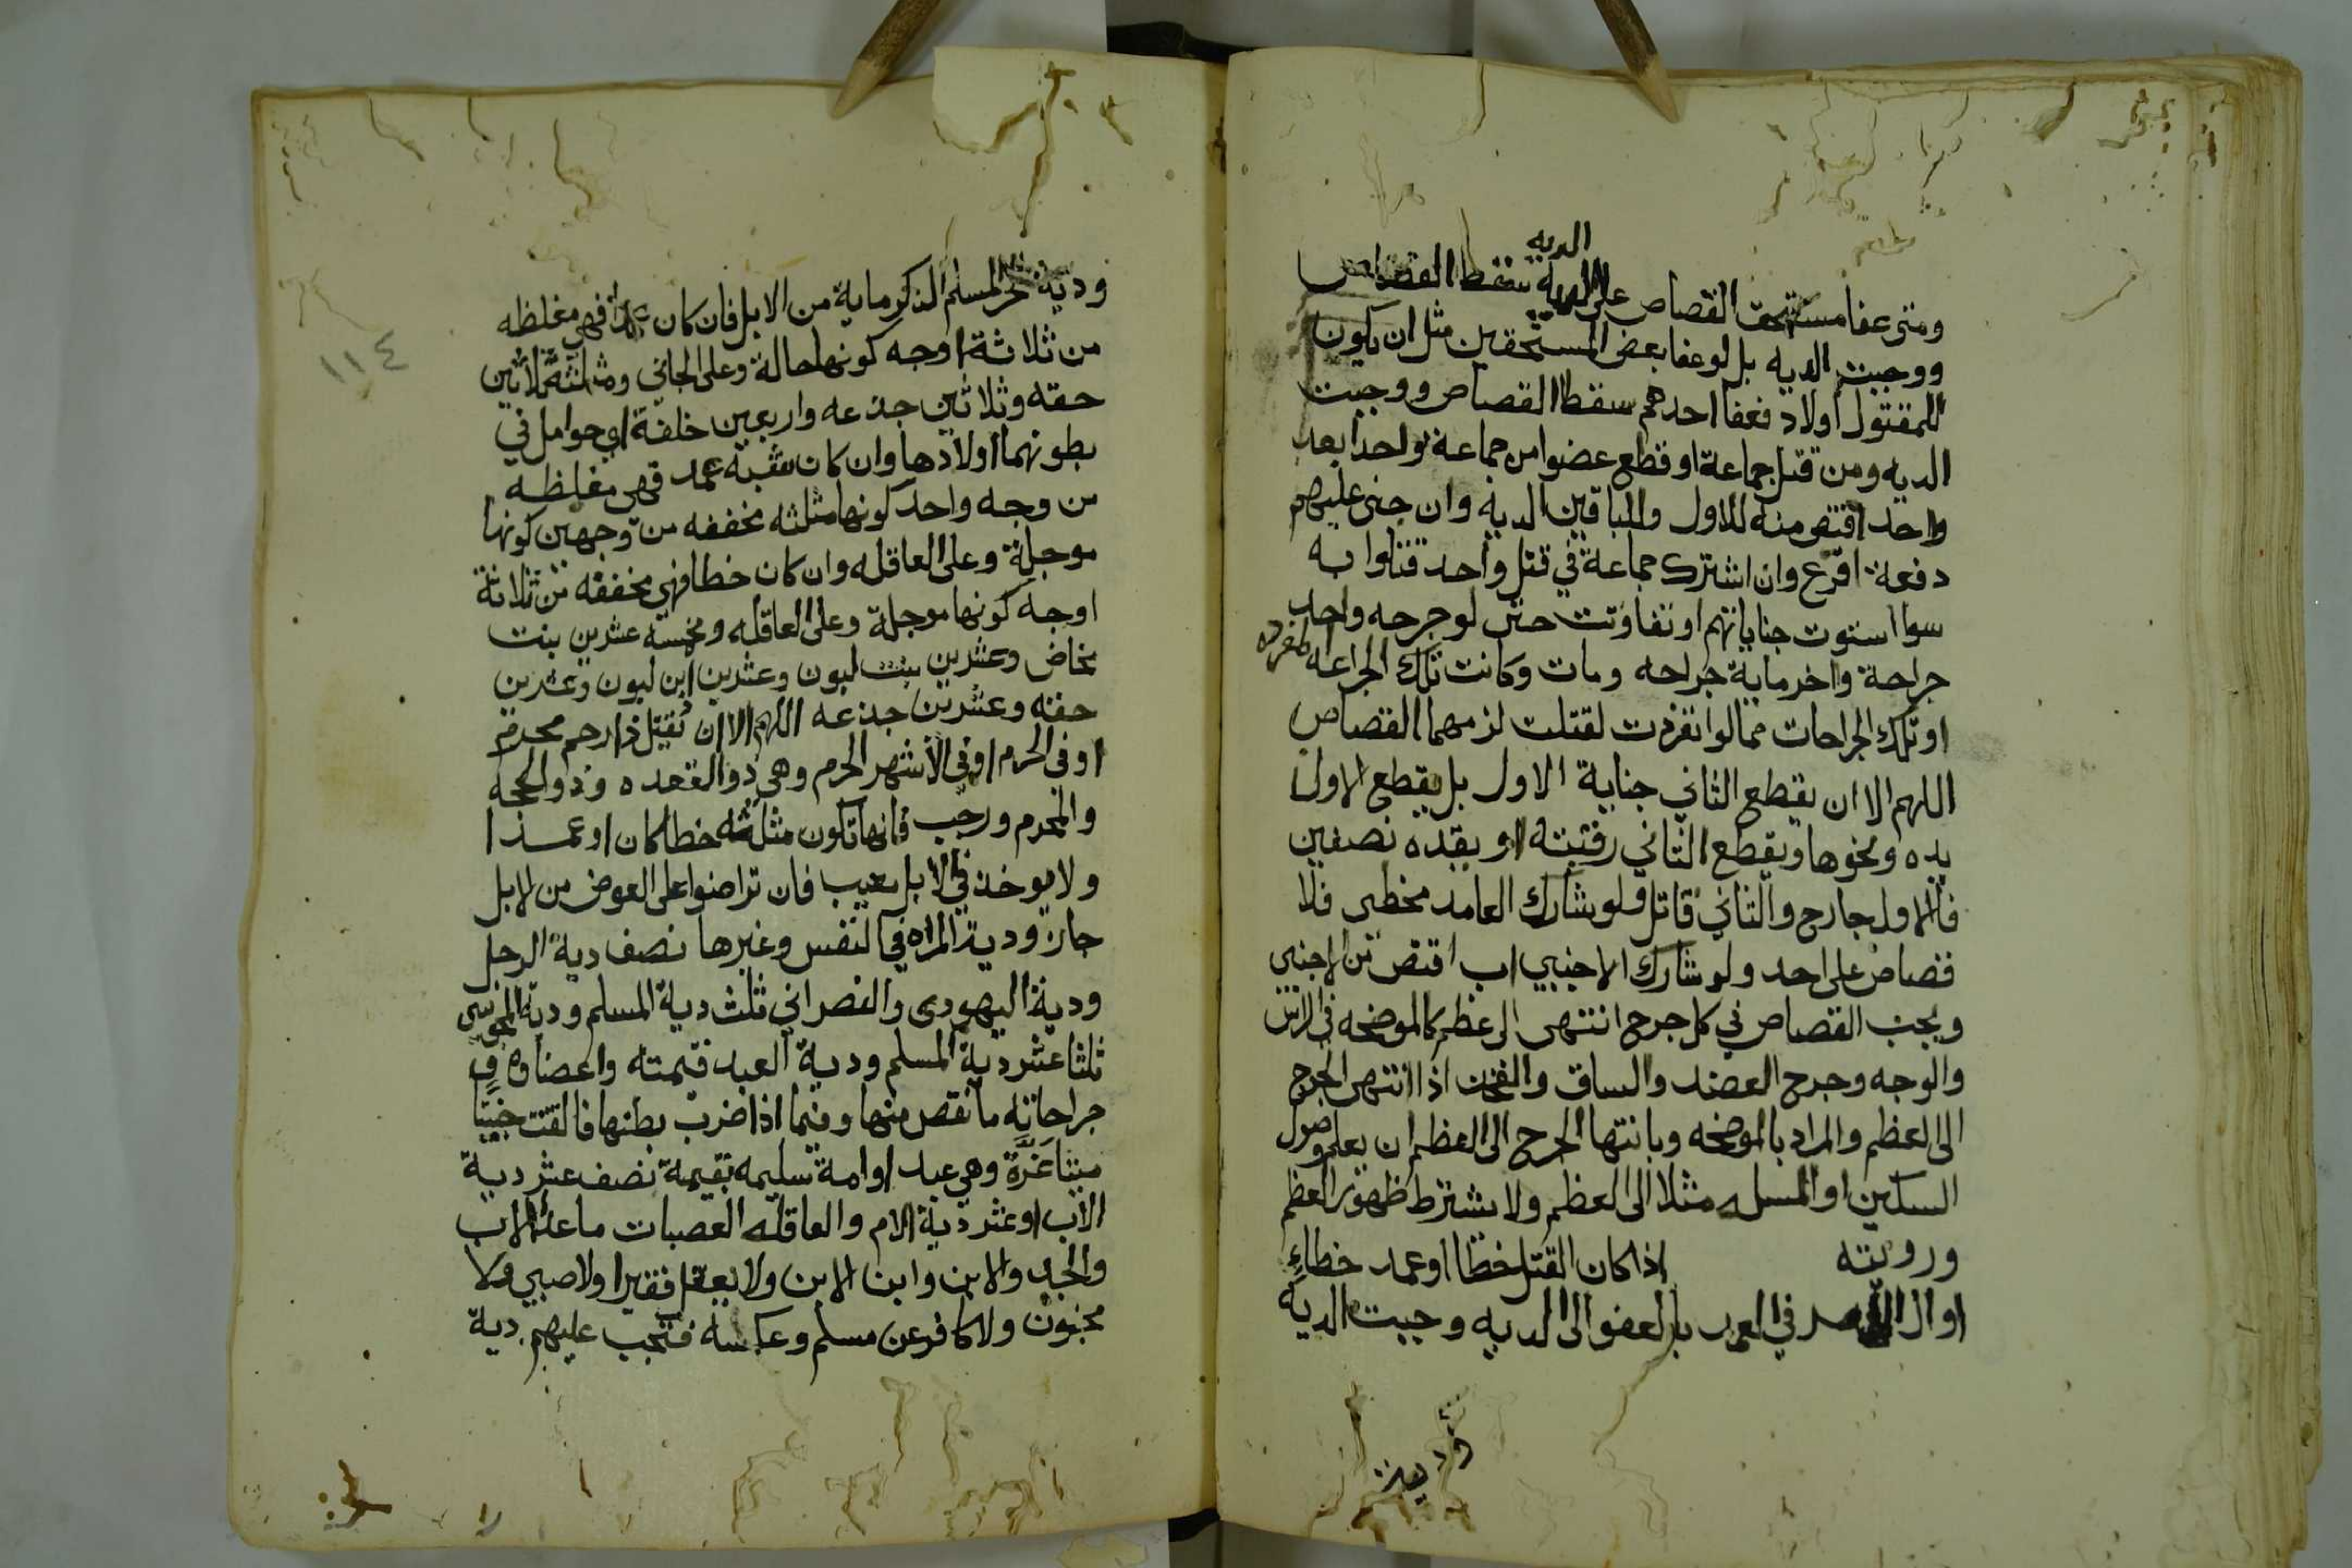 الديه
ومتى عفا مستحق القصاص على الديه سقط القصاص
ووجبت الديه بل لو عفا بعض المستحقين مثل ان يكون
للمقتول اولاد فعفا احدهم سقط القصاص ووجبت
الديه ومن قتل جماعة او قطع عضوا من جماعة واحدا بعد
واحد اقتص منه للاول وللباقين الدية وان جنى عليهم
دفعة اقرع وان اشترك جماعة في قتل واحد قتلوا به
سوا استوت جناياتهم او تفاوتت حتى لو جرحه واحد
جراحة واخر ماية جراحه ومات وكانت تلك الجراحه المفرده
او تلك الجراحات مما لو انفردت لقتلت لزمهما القصاص
اللهم الا ان يقطع الثاني جناية الاول بل يقطع الاول
يده ونحوها ويقطع الثاني رقبته او يقده نصفين
فالاول جارح والثاني قاتل ولو شارك العامد مخطي فلا
قصاص على احد ولو شارك الاجنبي اب اقتص من الاجنبي
ويجب القصاص في كل جرح انتهى الى عظم كالموضحه في الراس
والوجه وجرح العضد والساق والفخذ اذا انتهى الجرح
الى العظم والمراد بالموضحه وبانتها الجرح الى العظم ان يعلم وصول
السكين او المسله مثلا الى العظم ولا يشترط ظهور العظم
ورويته اذا كان القتل خطا او عمد خطاء
او ال في العمد بالعفو الى الديه وجبت الدية
ودية
ودية الحر المسلم الذكر ماية من الابل فان كان عمدا فهي مغلظه
من ثلاثة اوجه كونها حالة وعلى الجاني ومثلثة ثلاثين
حقه وثلاثين جذعه واربعين خلفة اي حوامل في
بطونها اولادها وان كان شبه عمد فهي مغلظه
من وجه واحد كونها مثلثه مخففه من وجهين كونها
موجلة وعلى العاقله وان كان خطا فهي مخففه من ثلاثة
اوجه كونها موجلة وعلى العاقله ومخمسة عشرين بنت
مخاض وعشرين بنت لبون وعشرين ابن لبون وعشرين
حقه وعشرين جذعه اللهم الا ان يقتل ذا رحم محرم
او في الحرم او في الاشهر الحرم وهي ذو القعده وذو الحجه
والمحرم ورجب فانها تكون مثلثه خطا كان او عمدا
ولا يوخذ في الابل معيب فان تراضوا على العوض من الابل
جاز ودية المراه في النفس وغيرها نصف دية الرجل
ودية اليهودى والنصراني ثلث دية المسلم ودية المجوسى
ثلثا عشر دية المسلم ودية العبد قيمته واعضاوه في
جراحاته ما نقص منها وفيما اذا ضرب بطنها فالقت جنينا
ميتا غرة وهي عبد او امة سليمه بقيمة نصف عشر دية
الاب او عشر دية الام والعاقله العصبات ما عدا الاب
والجد والابن وابن الابن ولا يعقل فقير ولا صبي ولا
مجنون ولا كافر عن مسلم وعكسه فتجب عليهم دية
١١٤